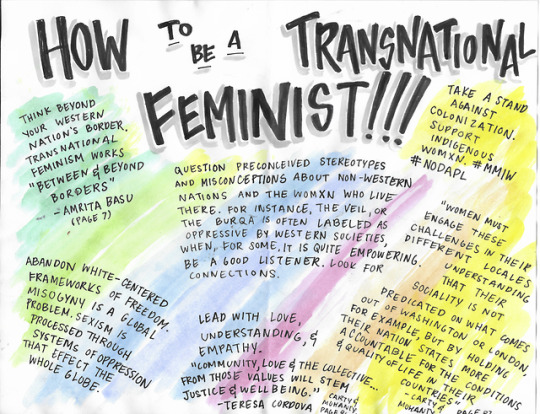 HOW TO BE A TRANSNATIONAL
FEMINIST!!!
THINK BEYOND
YOUR WESTERN
NATION'S BORDER.
TRANSNATIONAL
FEMINISM WORKS
"BETWEEN & BEYOND
BORDERS"
- AMRITA BASU
(PAGE 7)
TAKE A STAND
AGAINST
COLONIZATION.
SUPPORT
INDIGENOUS
WOMXN. #MMIW
#NODAPL
QUESTION PRECONCEIVED STEREOTYPES
AND MISCONCEPTIONS ABOUT NON-WESTERN
NATIONS AND THE WOMXN WHO LIVE
THERE. FOR INSTANCE, THE VEIL, OR
THE BURQA IS OFTEN LABELED AS
OPPRESSIVE BY WESTERN SOCIETIES,
WHEN, FOR SOME, IT IS QUITE EMPOWERING.
BE A GOOD LISTENER. LOOK FOR
CONNECTIONS.
ABANDON WHITE-CENTERED
FRAMEWORKS OF FREEDOM.
MISOGYNY IS A GLOBAL
PROBLEM. SEXISM IS
PROCESSED THROUGH
SYSTEMS OF OPPRESSION
THAT EFFECT THE
WHOLE GLOBE.
LEAD WITH LOVE,
UNDERSTANDING, &
EMPATHY.
"COMMUNITY, LOVE & THE COLLECTIVE.
FROM THOSE VALUES WILL STEM
JUSTICE & WELLBEING."
- TERESA CORDOVA
"WOMEN MUST
ENGAGE THESE
CHALLENGES IN THEIR
DIFFERENT LOCALES
UNDERSTANDING
THAT THEIR
SOCIALITY IS NOT
PREDICATED ON WHAT COMES
OUT OF WASHINGTON OR LONDON,
FOR EXAMPLE, BUT BY HOLDING
THEIR NATION STATES MORE
ACCOUNTABLE FOR THE CONDITIONS
& QUALITY OF LIFE IN THEIR
COUNTRIES"
- CARTY &
MOHANTY
CARTY &
MOHANTY